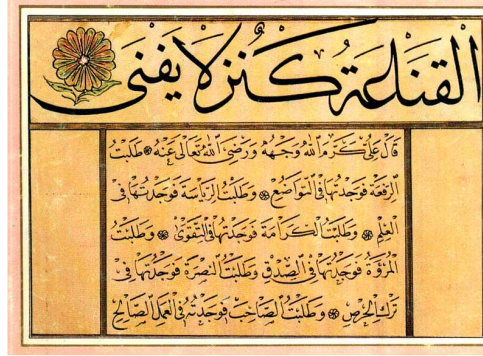 القناعة كنز لا يفنى
قال علي كرم الله وجهه ورضي الله تعالى عنه طلبت
الرفعة فوجدتها في التواضع وطلبت الرياسة فوجدتها في
العلم وطلبت الكرامة فوجدتها في التقوى وطلبت
المروة فوجدتها في الصدق وطلبت النصرة فوجدتها في
ترك الحرص وطلبت الصاحب فوجدته في العمل الصالح